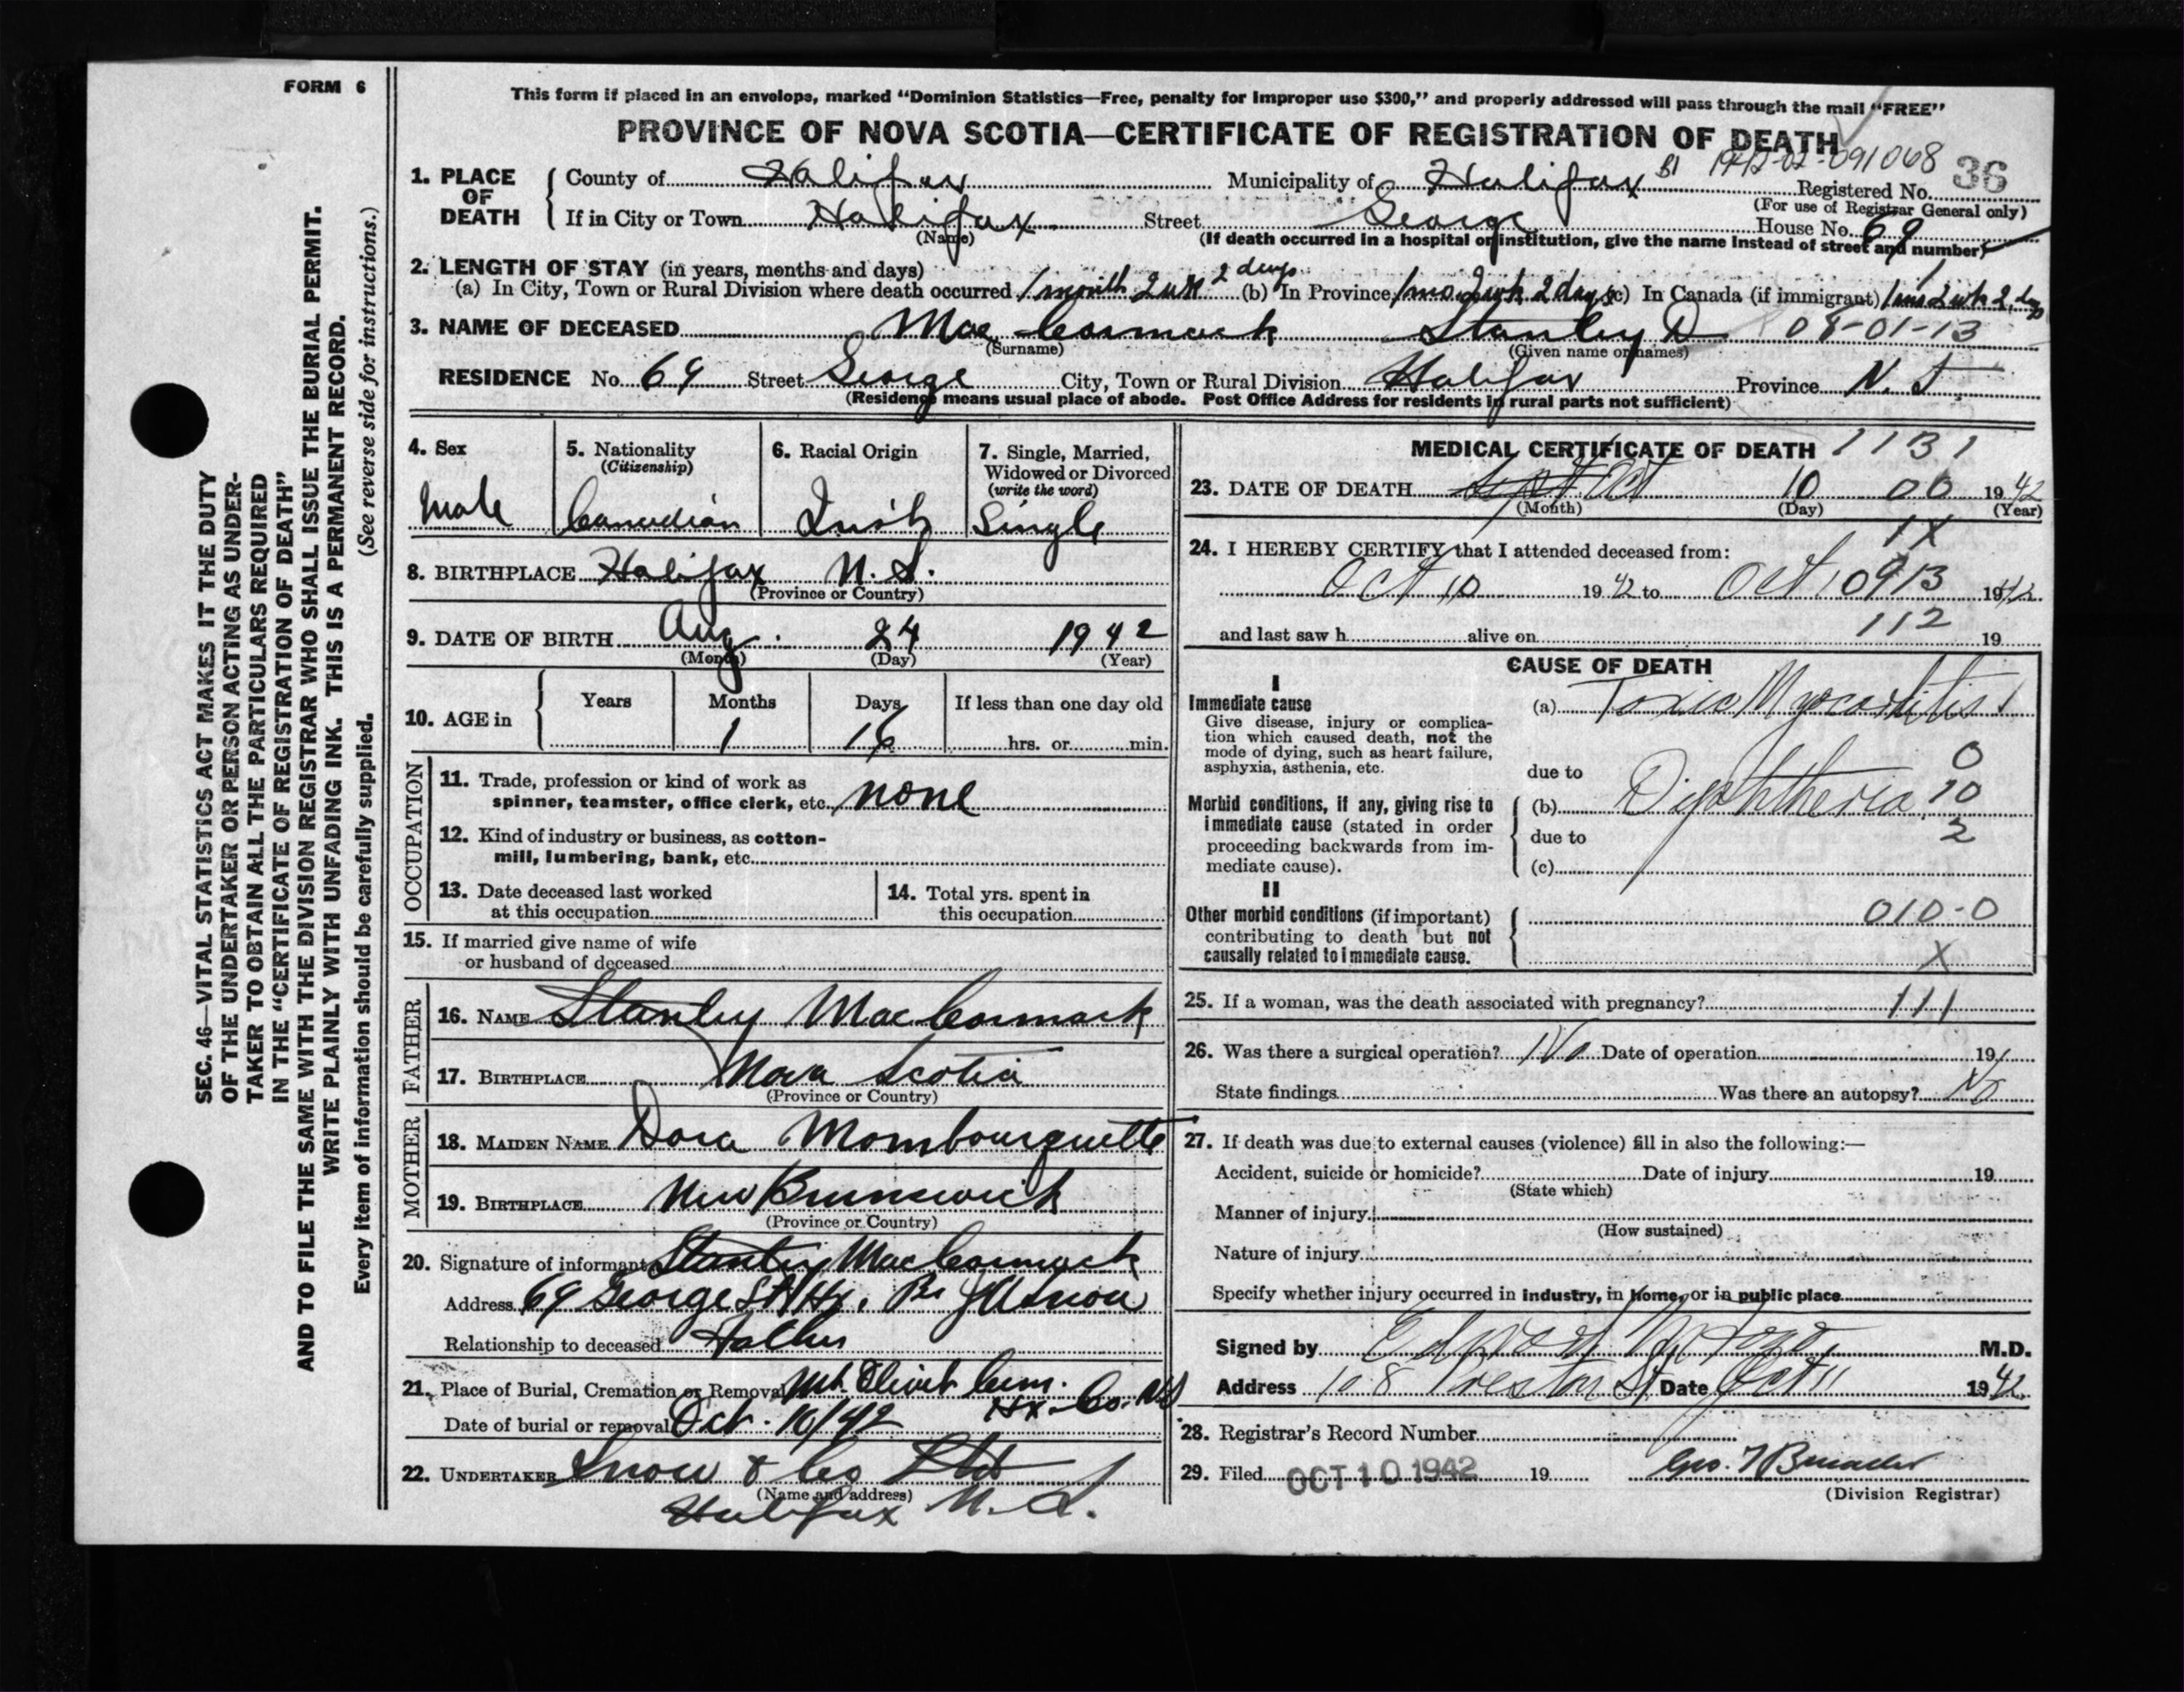 FORM 6
This form if placed in an envelope, marked “Dominion Statistics—Free, penalty for improper use $300,” and properly addressed will pass through the mail “FREE”
PROVINCE OF NOVA SCOTIA—CERTIFICATE OF REGISTRATION OF DEATH
1942-02-091068
1. PLACE OF DEATH
County of Halifax Municipality of Halifax Registered No. 36
(For use of Registrar General only)
If in City or Town Halifax Street George House No. 69
(Name) (If death occurred in a hospital or institution, give the name instead of street and number)
2. LENGTH OF STAY (in years, months and days)
(a) In City, Town or Rural Division where death occurred 1 month 2 wk 2 days (b) In Province 1 mo. 2 wk 2 days (c) In Canada (if immigrant) 1 mo 2 wk 2 dys
3. NAME OF DECEASED MacCormack Stanley D 08-01-13
(Surname) (Given name or names)
RESIDENCE No. 69 Street George City, Town or Rural Division Halifax Province N. S
(Residence means usual place of abode. Post Office Address for residents in rural parts not sufficient)
4. Sex
Male
5. Nationality
(Citizenship)
Canadian
6. Racial Origin
Irish
7. Single, Married,
Widowed or Divorced
(write the word)
Single
8. BIRTHPLACE Halifax N. S.
(Province or Country)
9. DATE OF BIRTH Aug. 24 1942
(Month) (Day) (Year)
10. AGE in
Years Months Days If less than one day old
1 16 hrs. or min.
OCCUPATION
11. Trade, profession or kind of work as
spinner, teamster, office clerk, etc. none
12. Kind of industry or business, as cotton-
mill, lumbering, bank, etc.
13. Date deceased last worked
at this occupation
14. Total yrs. spent in
this occupation
15. If married give name of wife
or husband of deceased
FATHER
16. NAME Stanley MacCormack
17. BIRTHPLACE Nova Scotia
(Province or Country)
MOTHER
18. MAIDEN NAME Dora Mombourquette
19. BIRTHPLACE New Brunswick
(Province or Country)
20. Signature of informant Stanley MacCormack
Address 69 George St Hx. Per J A Snow
Relationship to deceased Father
21. Place of Burial, Cremation or Removal Mt. Olivet Cem.
Hx. Co. NS
Date of burial or removal Oct. 10/42
22. UNDERTAKER Snow & Co Ltd
(Name and address)
Halifax N. S.
MEDICAL CERTIFICATE OF DEATH 1131
23. DATE OF DEATH Sept Oct 10 00 1942
(Month) (Day) (Year)
1X
24. I HEREBY CERTIFY that I attended deceased from:
Oct 10 1942 to Oct 10 913 1942
and last saw h alive on 112 19
CAUSE OF DEATH
I
Immediate cause
Give disease, injury or complica-
tion which caused death, not the
mode of dying, such as heart failure,
asphyxia, asthenia, etc.
(a) Toxic Myocarditis 1
0
due to
Morbid conditions, if any, giving rise to
immediate cause (stated in order
proceeding backwards from im-
mediate cause).
(b) Diphtheria 10
due to 2
(c)
II
Other morbid conditions (if important)
contributing to death but not
causally related to immediate cause.
010-0
X
25. If a woman, was the death associated with pregnancy? 111
26. Was there a surgical operation? No Date of operation 19
State findings Was there an autopsy? No
27. If death was due to external causes (violence) fill in also the following:—
Accident, suicide or homicide? Date of injury 19
(State which)
Manner of injury
(How sustained)
Nature of injury
Specify whether injury occurred in industry, in home, or in public place
Signed by Edward M.D.
Address 108 Preston St. Date Oct 11 1942
28. Registrar's Record Number
29. Filed OCT 10 1942 19
(Division Registrar)
SEC. 46—VITAL STATISTICS ACT MAKES IT THE DUTY
OF THE UNDERTAKER OR PERSON ACTING AS UNDER-
TAKER TO OBTAIN ALL THE PARTICULARS REQUIRED
IN THE “CERTIFICATE OF REGISTRATION OF DEATH”
AND TO FILE THE SAME WITH THE DIVISION REGISTRAR WHO SHALL ISSUE THE BURIAL PERMIT.
WRITE PLAINLY WITH UNFADING INK. THIS IS A PERMANENT RECORD.
Every item of information should be carefully supplied. (See reverse side for instructions.)